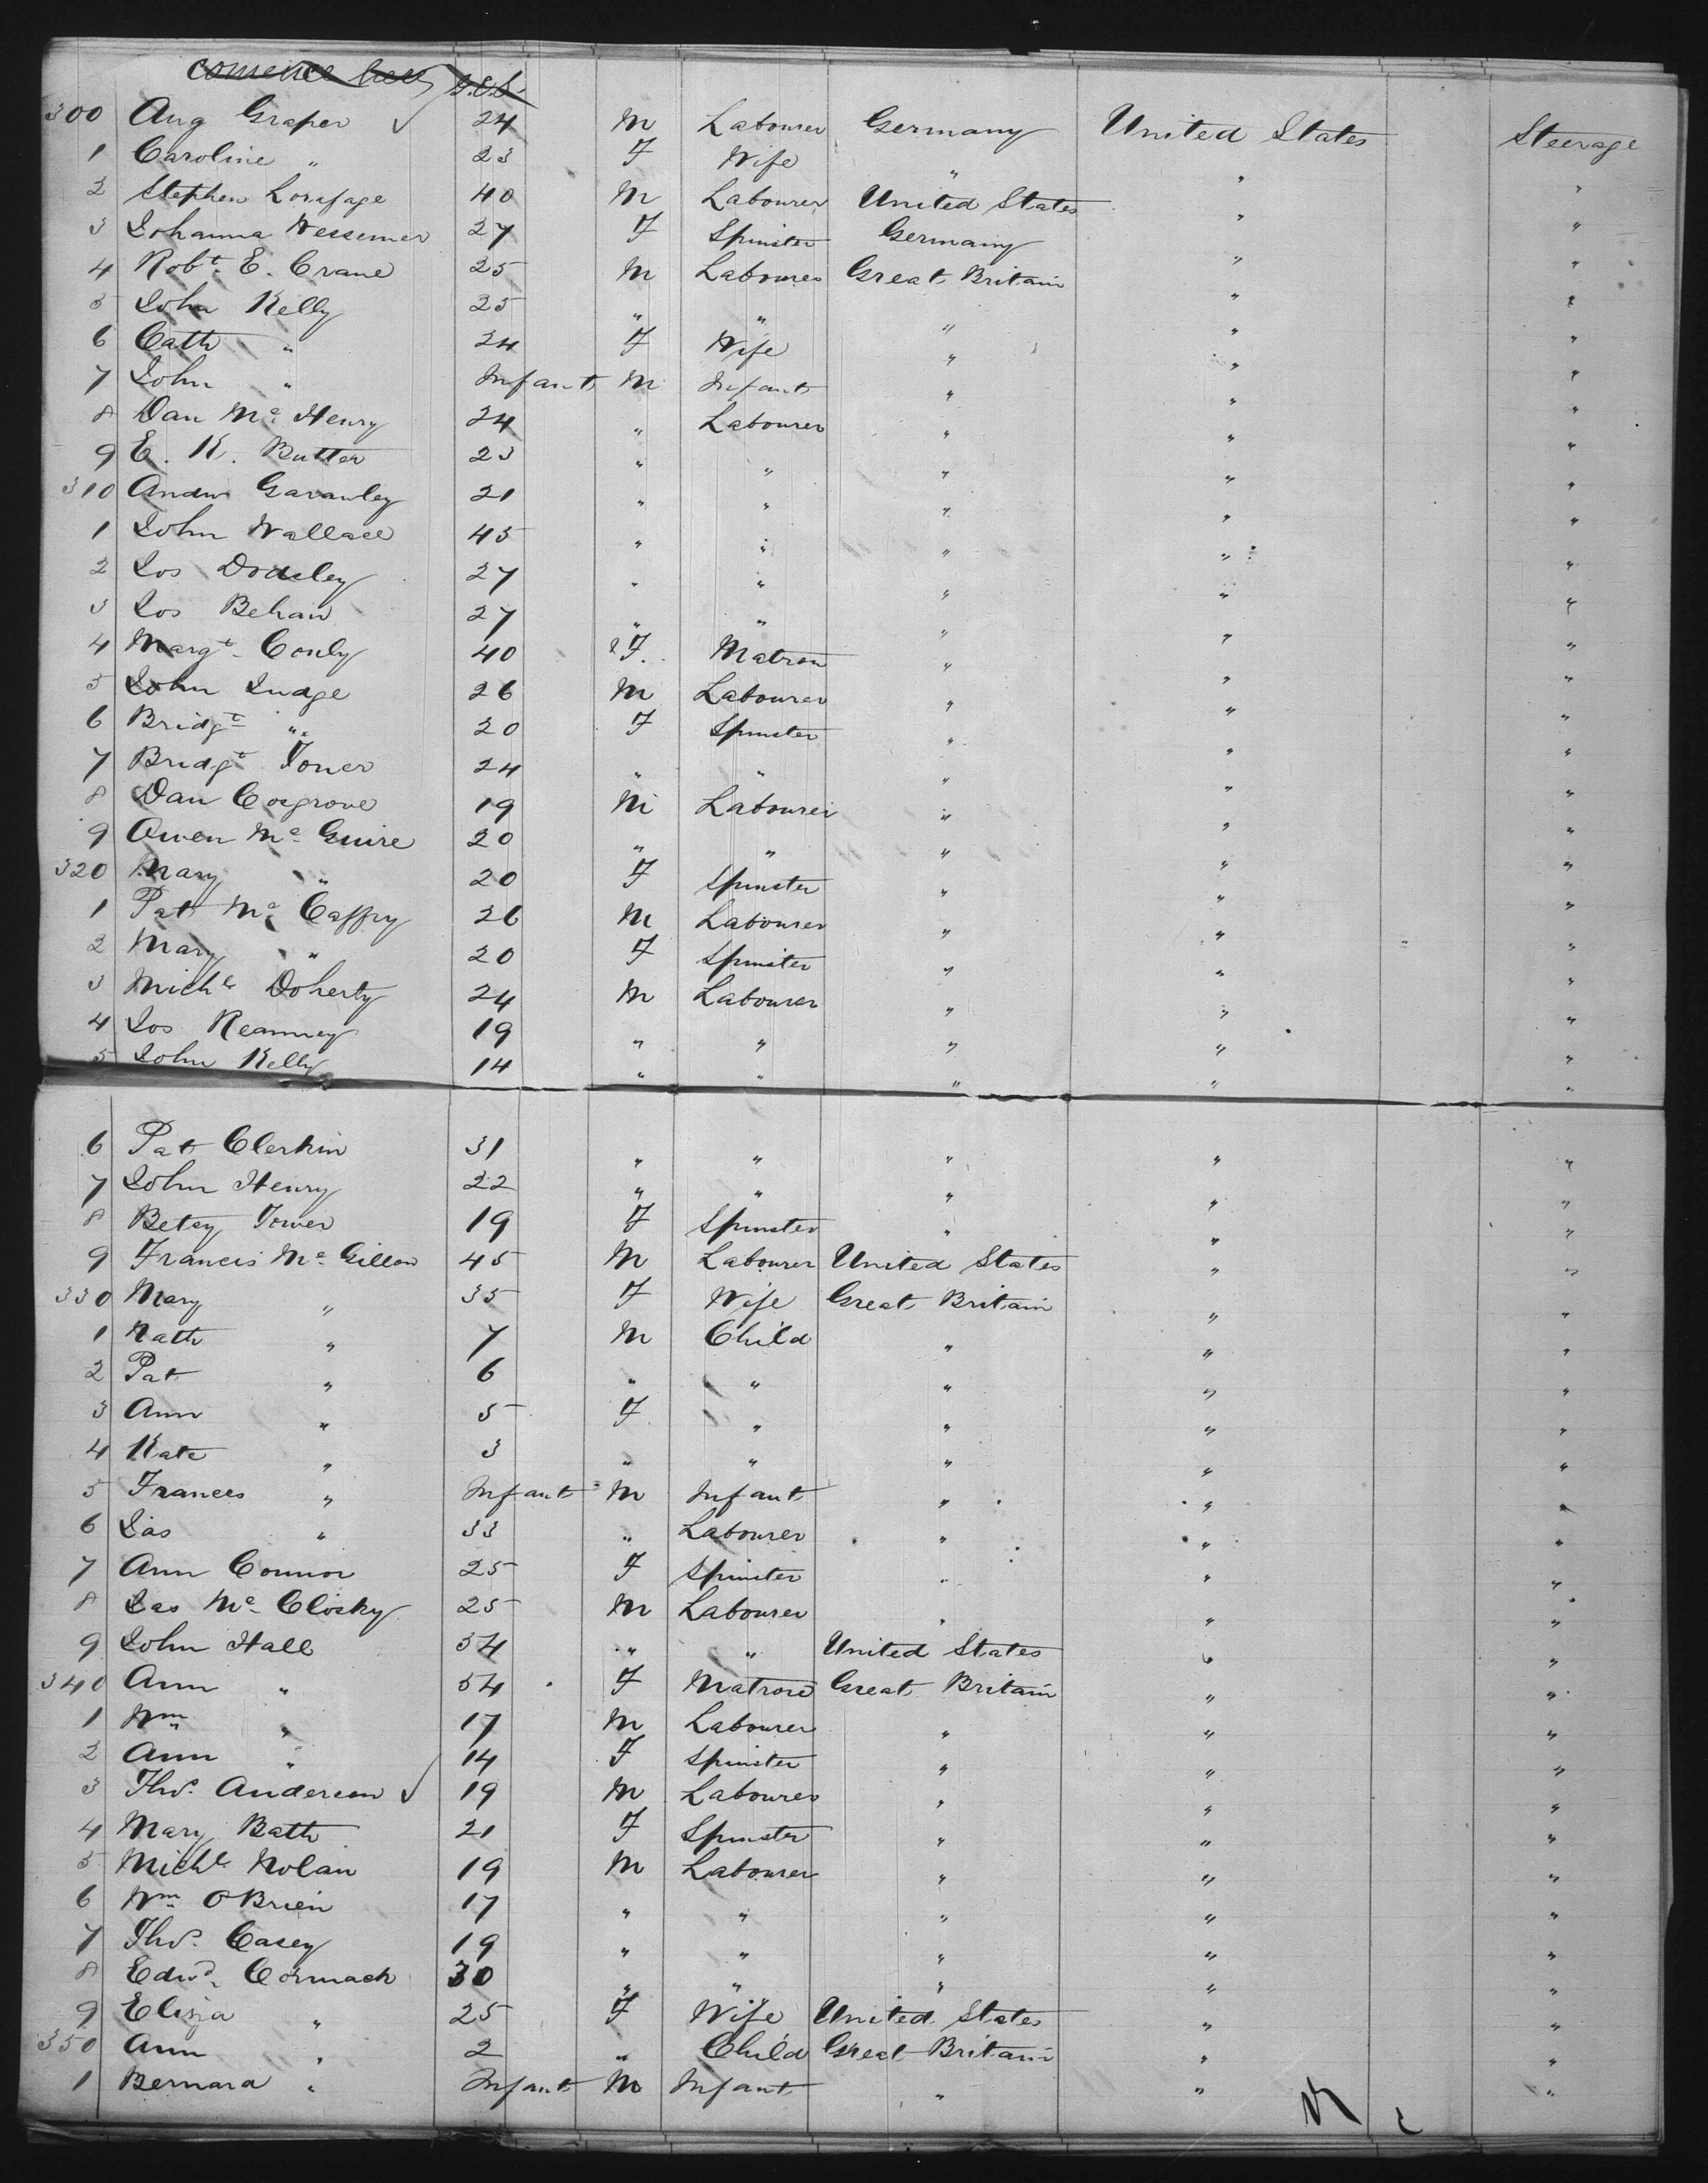 Comence here J.C.S.
300 Aug Graper ✓ 24 M Labourer Germany United States Steerage
1 Caroline " 23 F Wife " " "
2 Stephen 40 M Labourer United States " "
3 Johanna Wessemer 27 F Spinster Germany " "
4 Robt. E. Crane 25 M Labourer Great Britain " "
5 John Kelly 25 " " " " "
6 Cath " 24 F Wife " " "
7 John " Infant M Infant " " "
8 Dan Mc Henry 24 " Labourer " " "
9 E. K. Butter 23 " " " " "
310 Andw Garawley 21 " " " " "
1 John Wallace 45 " " " " "
2 Jos Dodsley 27 " " " " "
3 Jos Behan 27 " " " " "
4 Margt. Conly 40 F. Matron " " "
5 John Judge 26 M Labourer " " "
6 Bridgt " 20 F Spinster " " "
7 Bridgt Joner 24 " " " " "
8 Dan Cosgrove 19 M Labourer " " "
9 Owen Mc Guire 20 " " " " "
320 Mary " 20 F Spinster " " "
1 Pat Mc Caffry 26 M Labourer " " "
2 Mary " 20 F Spinster " " "
3 Michl Doherty 24 M Labourer " " "
4 Jos Reamney 19 " " " " "
5 John Kelly 14 " " " " "
6 Pat Clerkin 31 " " " " "
7 John Henry 22 " " " " "
8 Betsy Joner 19 F Spinster " " "
9 Francis Mc Gillow 45 M Labourer United States " "
330 Mary " 35 F Wife Great Britain " "
1 Nath " 7 M Child " " "
2 Pat " 6 " " " " "
3 Ann " 5 F " " " "
4 Kate " 3 " " " " "
5 Frances " Infant M Infant " " "
6 Jas " 33 " Labourer " " "
7 Ann Connor 25 F Spinster " " "
8 Jas Mc Closky 25 M Labourer " " "
9 John Hall 54 " " United States " "
340 Ann " 54 F Matron Great Britain " "
1 Wm " 17 M Labourer " " "
2 Ann " 14 F Spinster " " "
3 Thos. Anderson ✓ 19 M Labourer " " "
4 Mary Bath 21 F Spinster " " "
5 Michl. Nolan 19 M Labourer " " "
6 Wm O'Brien 17 " " " " "
7 Thos. Casey 19 " " " " "
8 Edwd. Cormack 30 " " " " "
9 Eliza " 25 F Wife United States " "
350 Ann " 2 " Child Great Britain " "
1 Bernard " Infant M Infant " " "